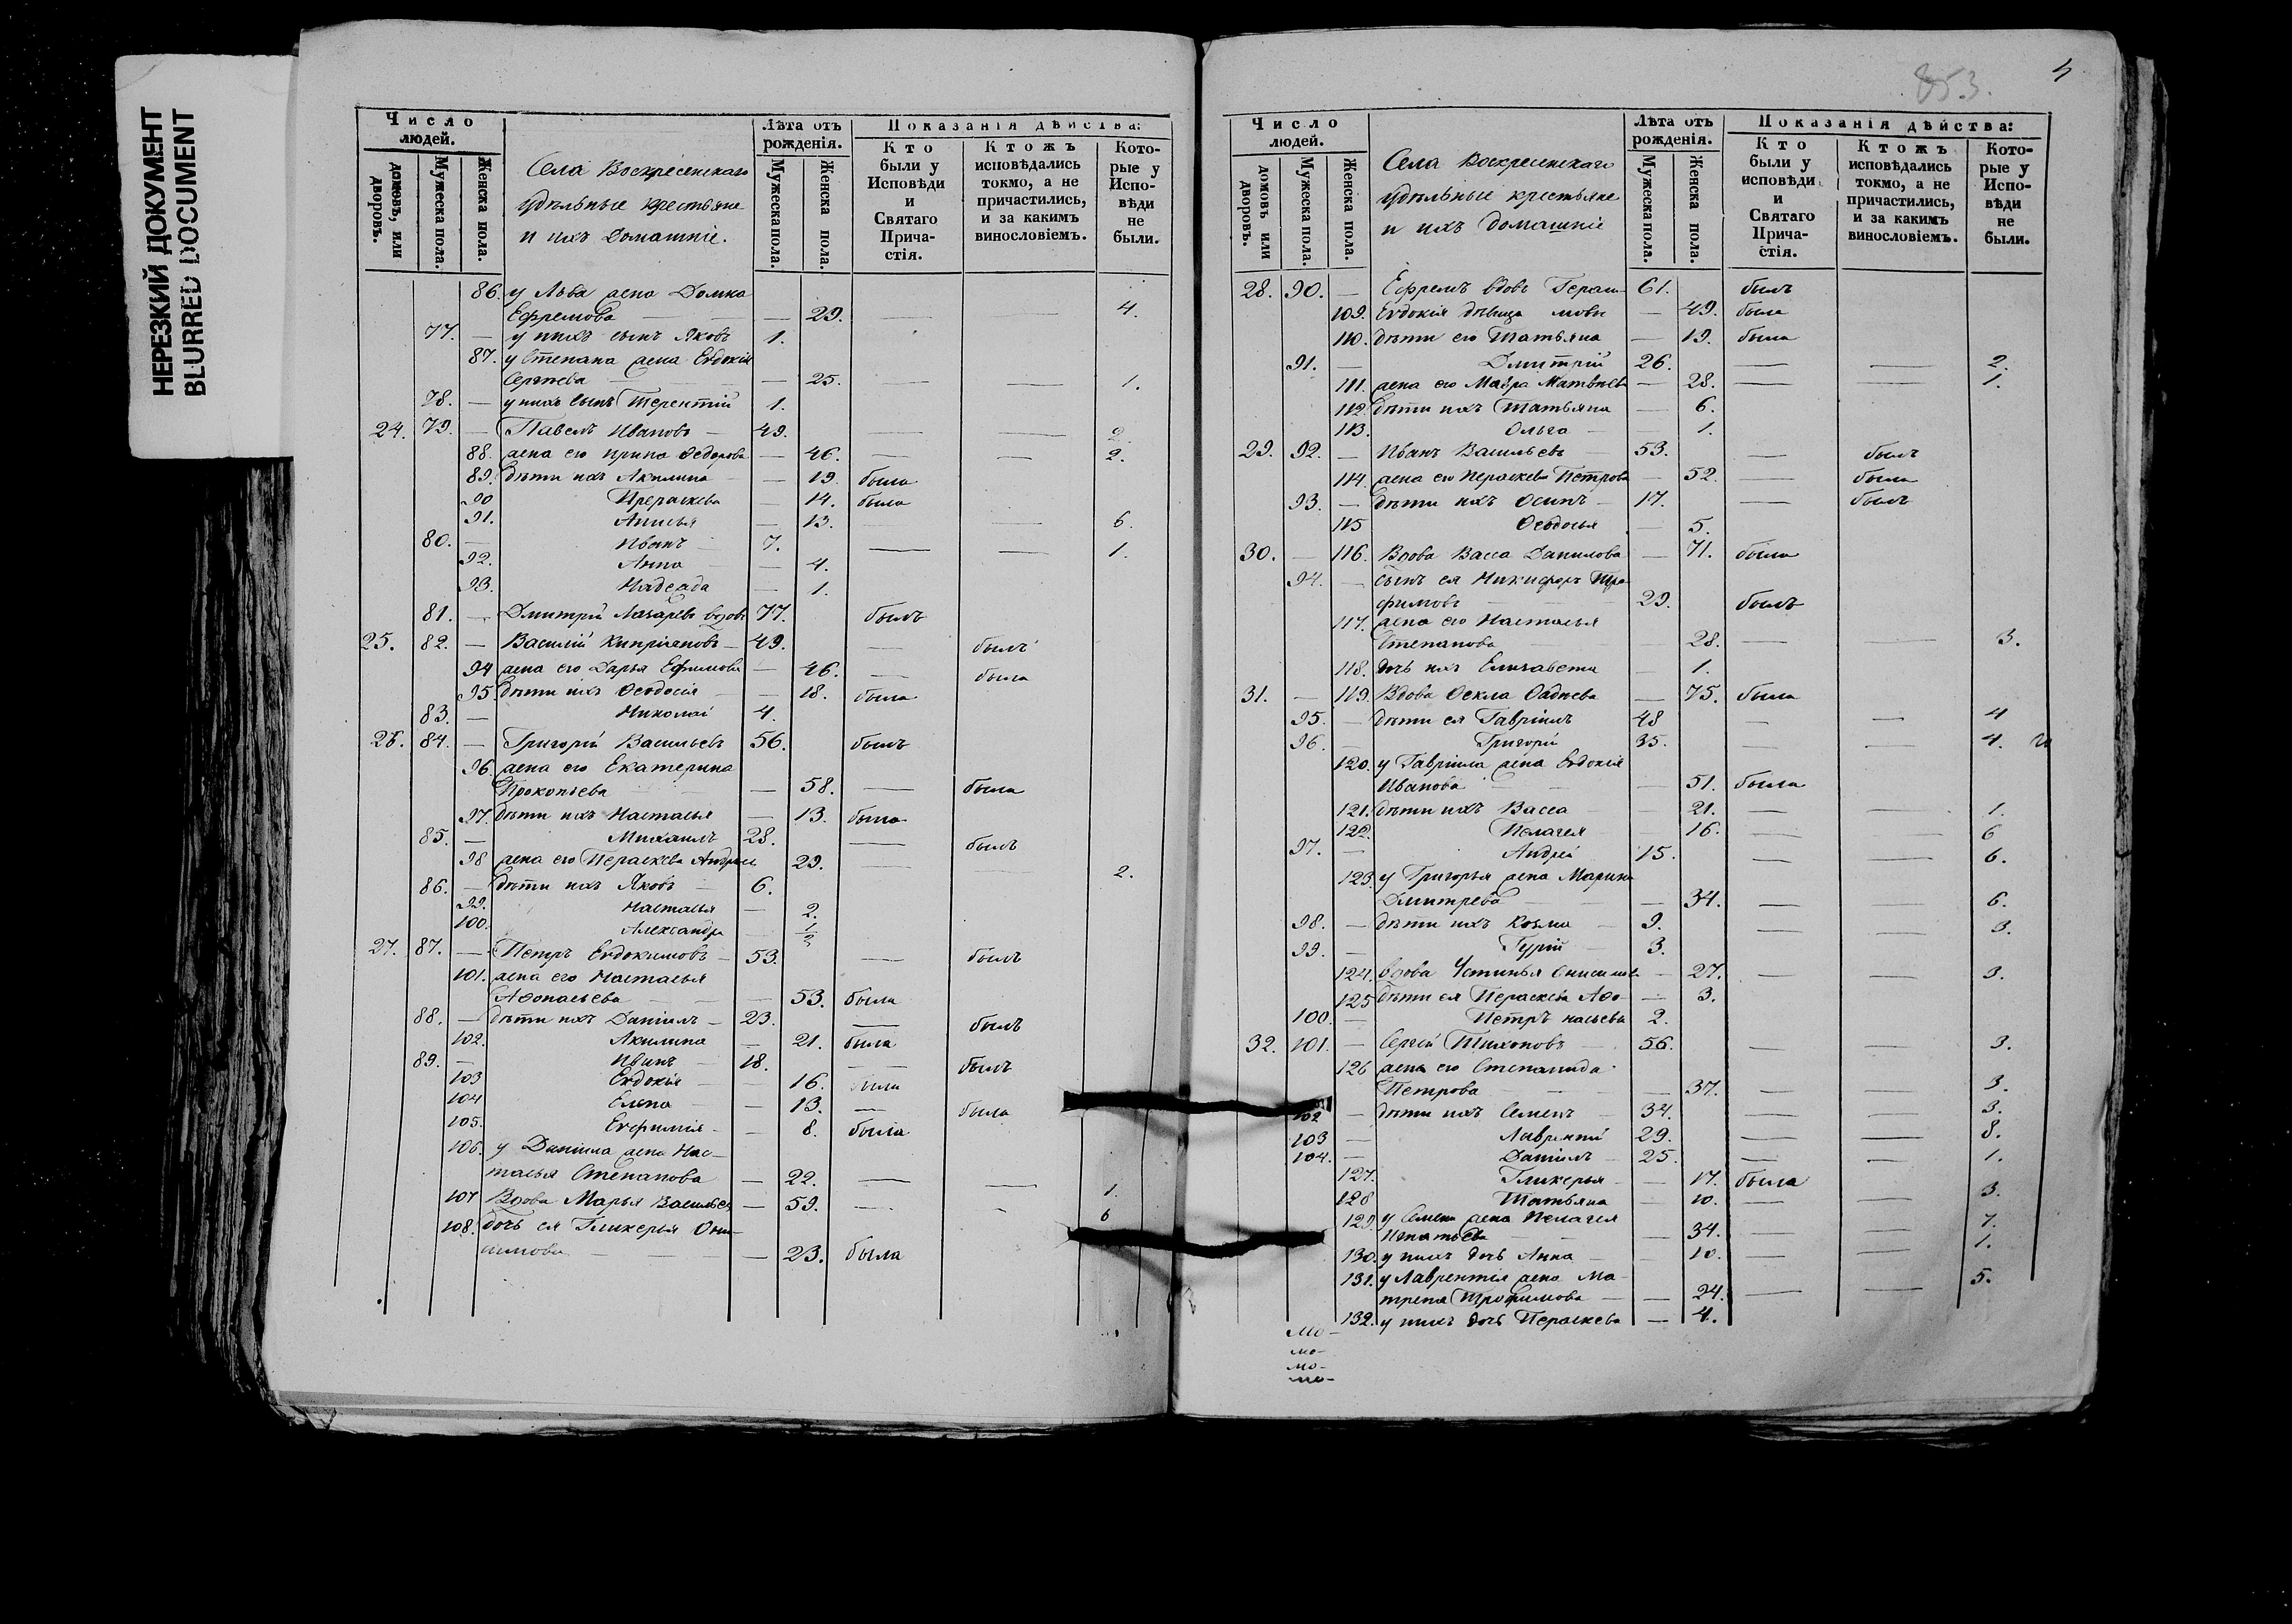 НЕРЕЗКИЙ ДОКУМЕНТ
BLURRED DOCUMENT
Число людей.
домовъ, или дворовъ.
Мужеска пола.
Женска пола.
Села Воскресенскаго
Удѣльные крестьяне
и ихъ Домашніе.
Лѣта отъ рожденія.
Мужеска пола.
Женска пола.
Показанія дѣйства:
Кто были у Исповѣди и Святаго Причастія.
Ктожъ исповѣдались токмо, а не причастились, и за какимъ винословіемъ.
Которые у Исповѣди не были.
86. у Льва жена Домна
Ефремова — 29. — — 4.
77. — у нихъ сынъ Яковъ 1.
87. у Степана жена Евдокія
Сергѣева — 25. — — 1.
78. — у нихъ сынъ Терентій 1.
24. 79. — Павелъ Ивановъ — 49. — — 2.
88. жена его Ирина Ѳедорова — 46. — — 2.
89. дѣти ихъ Акилина — 19. была
90 Пераскева — 14. была
91. Анисья — 13. — — 6.
80. — Иванъ 7. — — 1.
92. Анна — 4.
93. Надежда — 1.
81. — Дмитрій Лазаревъ вдовъ 77. былъ
25. 82. — Василій Кипріяновъ — 49. — былъ
94 жена его Дарья Ефимова — 46. — была
95. дѣти ихъ Ѳеодосія — 18. была
83. — Николай 4.
26. 84. — Григорій Васильевъ 56. былъ
96. жена его Екатерина
Прокопьева — 58. — была
97. дѣти ихъ Настасья — 13. была
85. — Михаилъ 28. — былъ
98 жена его Пераскева Андреи 29. — — 2.
86. — дѣти ихъ Яковъ 6.
99. Настасья — 2.
100. Александра — 1/2
27. 87. — Петръ Евдокимовъ — 53. — былъ
101. жена его Настасья
Аѳонасьева — 53. была
88. — дѣти ихъ Даніилъ — 23. — былъ
102. Акилина — 21. была
89. — Иванъ 18. — былъ
103 Евдокія — 16. была
104 Елена — 13. — была
105. Евфимія — 8. была
106. у Даніила жена Нас-
тасья Степанова — 22. — — 1.
107 Вдова Марья Васильев — 59. — - 6
108. дочь ея Гликерья Они-
симова — 23. была
853.
Число людей.
домовъ или дворовъ.
Мужеска пола.
Женска пола.
Села Воскресенскаго
Удѣльные крестьяне
и ихъ домашніе
Лѣта отъ рожденія.
Мужеска пола.
Женска пола.
Показанія дѣйства:
Кто были у исповѣди и Святаго Причастія.
Ктожъ исповѣдались токмо, а не причастились, и за какимъ винословіемъ.
Которые у Исповѣди не были.
28. 90. — Ефремъ вдовъ Герасі- 61. былъ
109. Евдокія дѣвица мовы — 49. была
110. дѣти его Татьяна — 19. была
91. — Дмитрій 26. — — 2.
111. жена его Мавра Матвѣев — 28. — — 1.
112. дѣти ихъ Татьяна — 6.
113. Ольга — 1.
29. 92. — Иванъ Васильевъ 53. — былъ
114. жена его Пераскева Петрова — 52. — была
93. — дѣти ихъ Осипъ — 17. — былъ
115 Ѳеодосья — 5.
30. — 116. Вдова Васса Данилова — 71. была
94. — сынъ ея Никифоръ Тро-
фимовъ 29. былъ
117. жена его Настасья
Степанова — 28. — — 3.
118. дочь ихъ Елизавета — 1.
31. — 119. Вдова Ѳекла Фадѣева — 75. была
95. — дѣти ея Гавріилъ 48 — — 4
96. — Григорій 35. — — 4.
120. у Гавріила жена Евдокія
Иванова — 51. была
121. дѣти ихъ Васса — 21. — — 1.
122. Пелагея — 16. — — 6
97. — Андрей 15. — — 6.
123. у Григорья жена Марина
Дмитрева — 34. — — 6.
98. — дѣти ихъ Козма — 9. — — 3.
99. — Гурій — 3.
124. вдова Устинья Онисимов — 27. — — 3.
125 дѣти ея Пераскева Аѳо- — 3.
100. — Петръ насьевы 2.
32. 101. — Сергій Тихоновъ 56. — — 3.
126 жена его Степанида
Петрова — 37. — — 3.
102 — дѣти ихъ Семенъ — 34. — — 3.
103 — Лаврентій 29. — — 8.
104. — Даніилъ 25. — — 1.
127. Гликерья — 17. была
128 Татьяна — 10. — — 3.
129. у Семена жена Пелагея
Игнатьева — 34. — — 7.
130. у нихъ дочь Анна — 10. — — 1.
131. у Лаврентія жена Ма-
трена Трофимова — 24. — — 5.
132. у нихъ дочь Пераскева — 4.
мо-
мо-
мо-
мо-